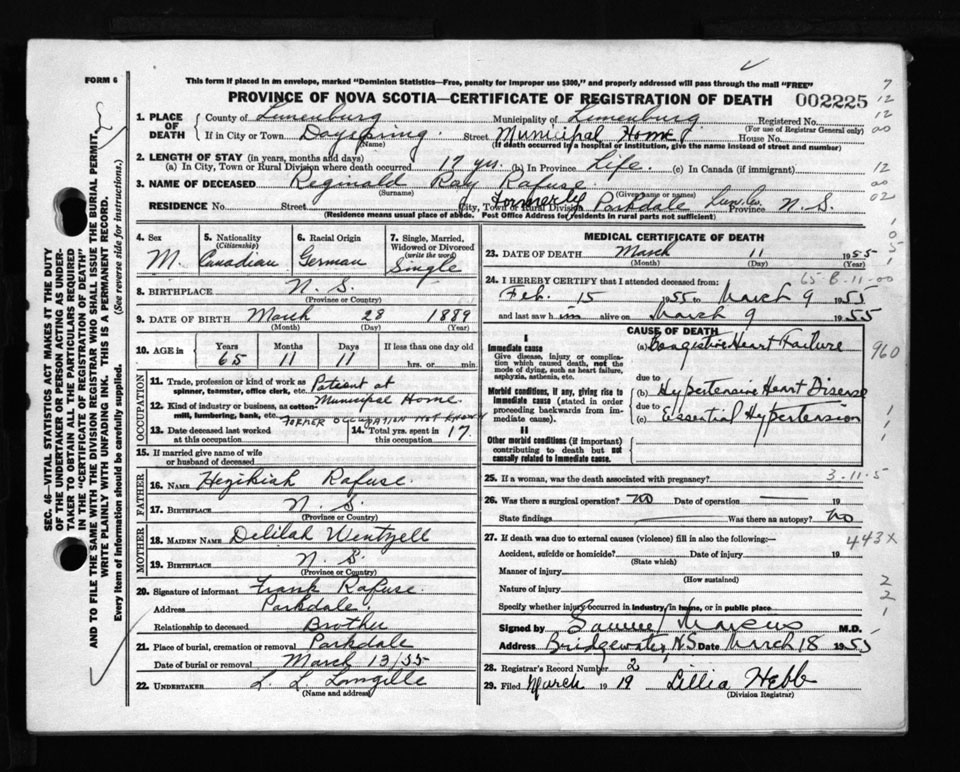 FORM 6
This form if placed in an envelope, marked "Dominion Statistics—Free, penalty for improper use $300," and properly addressed will pass through the mail "FREE"
PROVINCE OF NOVA SCOTIA—CERTIFICATE OF REGISTRATION OF DEATH 002225
SEC. 46—VITAL STATISTICS ACT MAKES IT THE DUTY
OF THE UNDERTAKER OR PERSON ACTING AS UNDER-
TAKER TO OBTAIN ALL THE PARTICULARS REQUIRED
IN THE "CERTIFICATE OF REGISTRATION OF DEATH"
AND TO FILE THE SAME WITH THE DIVISION REGISTRAR WHO SHALL ISSUE THE BURIAL PERMIT.
WRITE PLAINLY WITH UNFADING INK. THIS IS A PERMANENT RECORD.
Every Item of Information should be carefully supplied. (See reverse side for instructions.)
1. PLACE OF DEATH
County of Lunenburg Municipality of Lunenburg Registered No.
(For use of Registrar General only)
If in City or Town Dayspring Street Municipal Home House No.
(Name) (If death occurred in a hospital or institution, give the name instead of street and number)
2. LENGTH OF STAY (in years, months and days)
(a) In City, Town or Rural Division where death occurred 17 yrs. (b) In Province Life. (c) In Canada (if immigrant)
3. NAME OF DECEASED Reginald Ray Rafuse
(Surname) (Given name or names)
RESIDENCE No. Street City, Town or Rural Division Formerly Parkdale Lun. Co. Province N. S.
(Residence means usual place of abode. Post Office Address for residents in rural parts not sufficient)
4. Sex M.
5. Nationality (Citizenship) Canadian
6. Racial Origin German
7. Single, Married, Widowed or Divorced (write the word) Single
8. BIRTHPLACE N. S.
(Province or Country)
9. DATE OF BIRTH March 28 1889
(Month) (Day) (Year)
10. AGE in Years 65 Months 11 Days 11 If less than one day old hrs. or min.
OCCUPATION
11. Trade, profession or kind of work as spinner, teamster, office clerk, etc. Patient at
12. Kind of industry or business, as cotton-mill, lumbering, bank, etc. Municipal Home.
FORMER OCCUPATION NOT KNOWN
13. Date deceased last worked at this occupation
14. Total yrs. spent in this occupation 17.
15. If married give name of wife or husband of deceased
FATHER
16. NAME Hezikiah Rafuse.
17. BIRTHPLACE N. S.
(Province or Country)
MOTHER
18. MAIDEN NAME Delilah Wentzell
19. BIRTHPLACE N. S.
(Province or Country)
20. Signature of informant Frank Rafuse.
Address Parkdale.
Relationship to deceased Brother
21. Place of burial, cremation or removal Parkdale
Date of burial or removal March 13/55
22. UNDERTAKER L. L. Longille
(Name and address)
MEDICAL CERTIFICATE OF DEATH
23. DATE OF DEATH March 11 1955
(Month) (Day) (Year)
24. I HEREBY CERTIFY that I attended deceased from: 65-B-11-00
Feb. 15 1955 to March 9 1955
and last saw him alive on March 9 1955
CAUSE OF DEATH
I
Immediate cause
Give disease, injury or complication which caused death, not the mode of dying, such as heart failure, asphyxia, asthenia, etc.
(a) Congestive Heart Failure
due to
Morbid conditions, if any, giving rise to immediate cause (stated in order proceeding backwards from immediate cause).
(b) Hypertensive Heart Disease
due to
(c) Essential Hypertension
II
Other morbid conditions (if important) contributing to death but not causally related to immediate cause.
960
25. If a woman, was the death associated with pregnancy? 3-11-5
26. Was there a surgical operation? no Date of operation 19
State findings Was there an autopsy? no
27. If death was due to external causes (violence) fill in also the following:— 443X
Accident, suicide or homicide? Date of injury 19
(State which)
Manner of injury
(How sustained)
Nature of injury
Specify whether injury occurred in industry, in home, or in public place
Signed by Samuel Marcus M.D.
Address Bridgewater, N.S. Date March 18 1955
28. Registrar's Record Number 2
29. Filed March 19 19 Lillia Hebb
(Division Registrar)